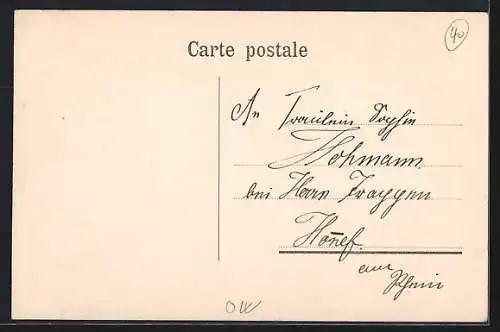 Carte postale
40
An Fräulein Sophie
Hohmann
bei Herrn Trappen
Honnef
am
Rhein